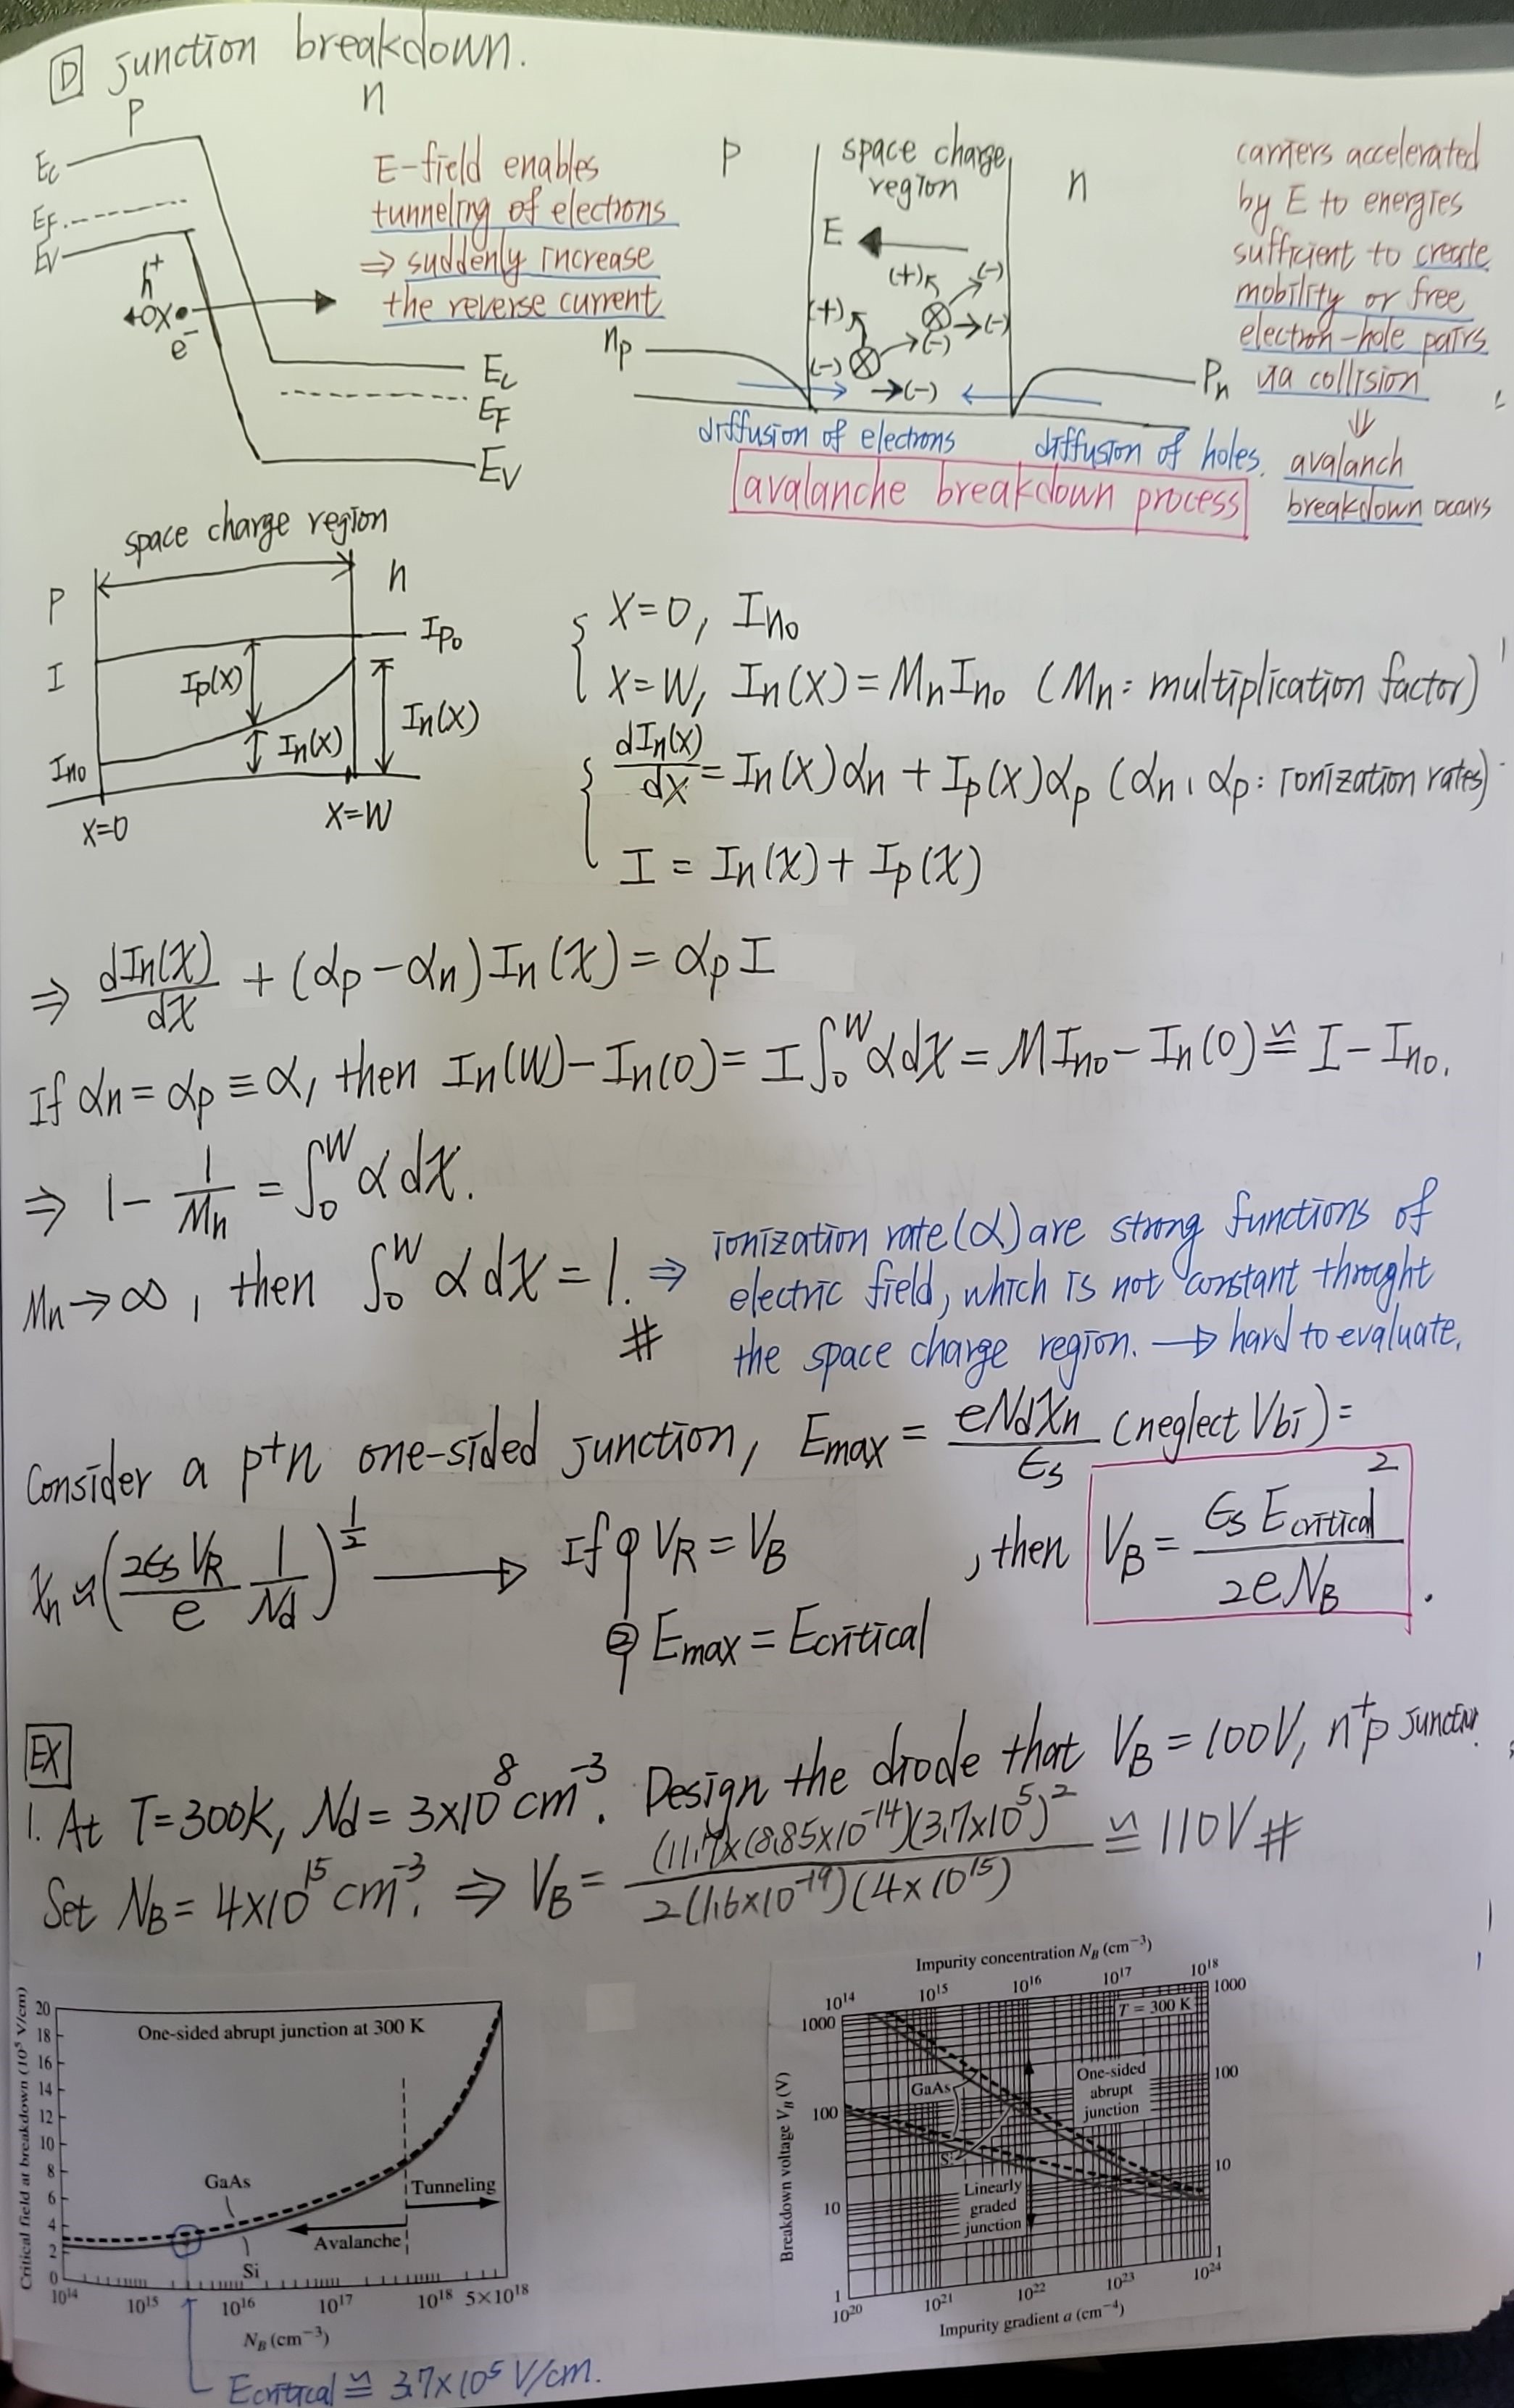 D junction breakdown.
P n
Ec
EF
Ev
h+
e-
Ec
EF
Ev
E-field enables
tunneling of electrons
⇒ suddenly increase
the reverse current
P space charge n
region
E
(+) (-)
(+) (-) (-)
(-) (-)
np
Pn
diffusion of electrons diffusion of holes.
avalanche breakdown process
carriers accelerated
by E to energies
sufficient to create
mobility or free
electron-hole pairs
via collision
⇓
avalanch
breakdown occurs
space charge region
P n
I Ip0
Ip(x)
In(x) In(x)
In0
x=0 x=W
{ x=0, In0
x=W, In(x) = MnIn0 (Mn: multiplication factor)
{ dIn(x)/dx = In(x)αn + Ip(x)αp (αn, αp: ionization rates)
I = In(x) + Ip(x)
⇒ dIn(x)/dx + (αp-αn)In(x) = αpI
If αn = αp ≡ α, then In(W)-In(0) = I∫₀ᵂ αdx = MIn0 - In(0) ≌ I - In0.
⇒ 1 - 1/Mn = ∫₀ᵂ αdx.
Mn→∞, then ∫₀ᵂ αdx = 1. #
⇒ ionization rate(α) are strong functions of
electric field, which is not constant throught
the space charge region. → hard to evaluate.
Consider a p+n one-sided junction, Emax = eNdxn/εs (neglect Vbi) =
xn ≈ (2εsVR/e 1/Nd)^1/2 → If ① VR = VB
② Emax = Ecritical
, then VB = εsEcritical²/2eNB.
EX
1. At T=300K, Nd = 3×10⁸cm⁻³. Design the diode that VB = 100V, n+p junction.
Set NB = 4×10¹⁵cm⁻³. ⇒ VB = (11.7)×(8.85×10⁻¹⁴)(3.7×10⁵)²/2(1.6×10⁻¹⁹)(4×10¹⁵) ≌ 110V #
Critical field at breakdown (10⁵ V/cm)
20
18
16
14
12
10
8
6
4
2
0
One-sided abrupt junction at 300 K
GaAs
Tunneling
Avalanche
Si
10¹⁴ 10¹⁵ 10¹⁶ 10¹⁷ 10¹⁸ 5×10¹⁸
NB (cm⁻³)
Ecritical ≌ 3.7×10⁵ V/cm.
Impurity concentration NB (cm⁻³)
10¹⁴ 10¹⁵ 10¹⁶ 10¹⁷ 10¹⁸
Breakdown voltage VB (V)
1000
100
10
1
T = 300 K
GaAs
One-sided
abrupt
junction
Si
Linearly
graded
junction
1000
100
10
1
10²⁰ 10²¹ 10²² 10²³ 10²⁴
Impurity gradient a (cm⁻⁴)